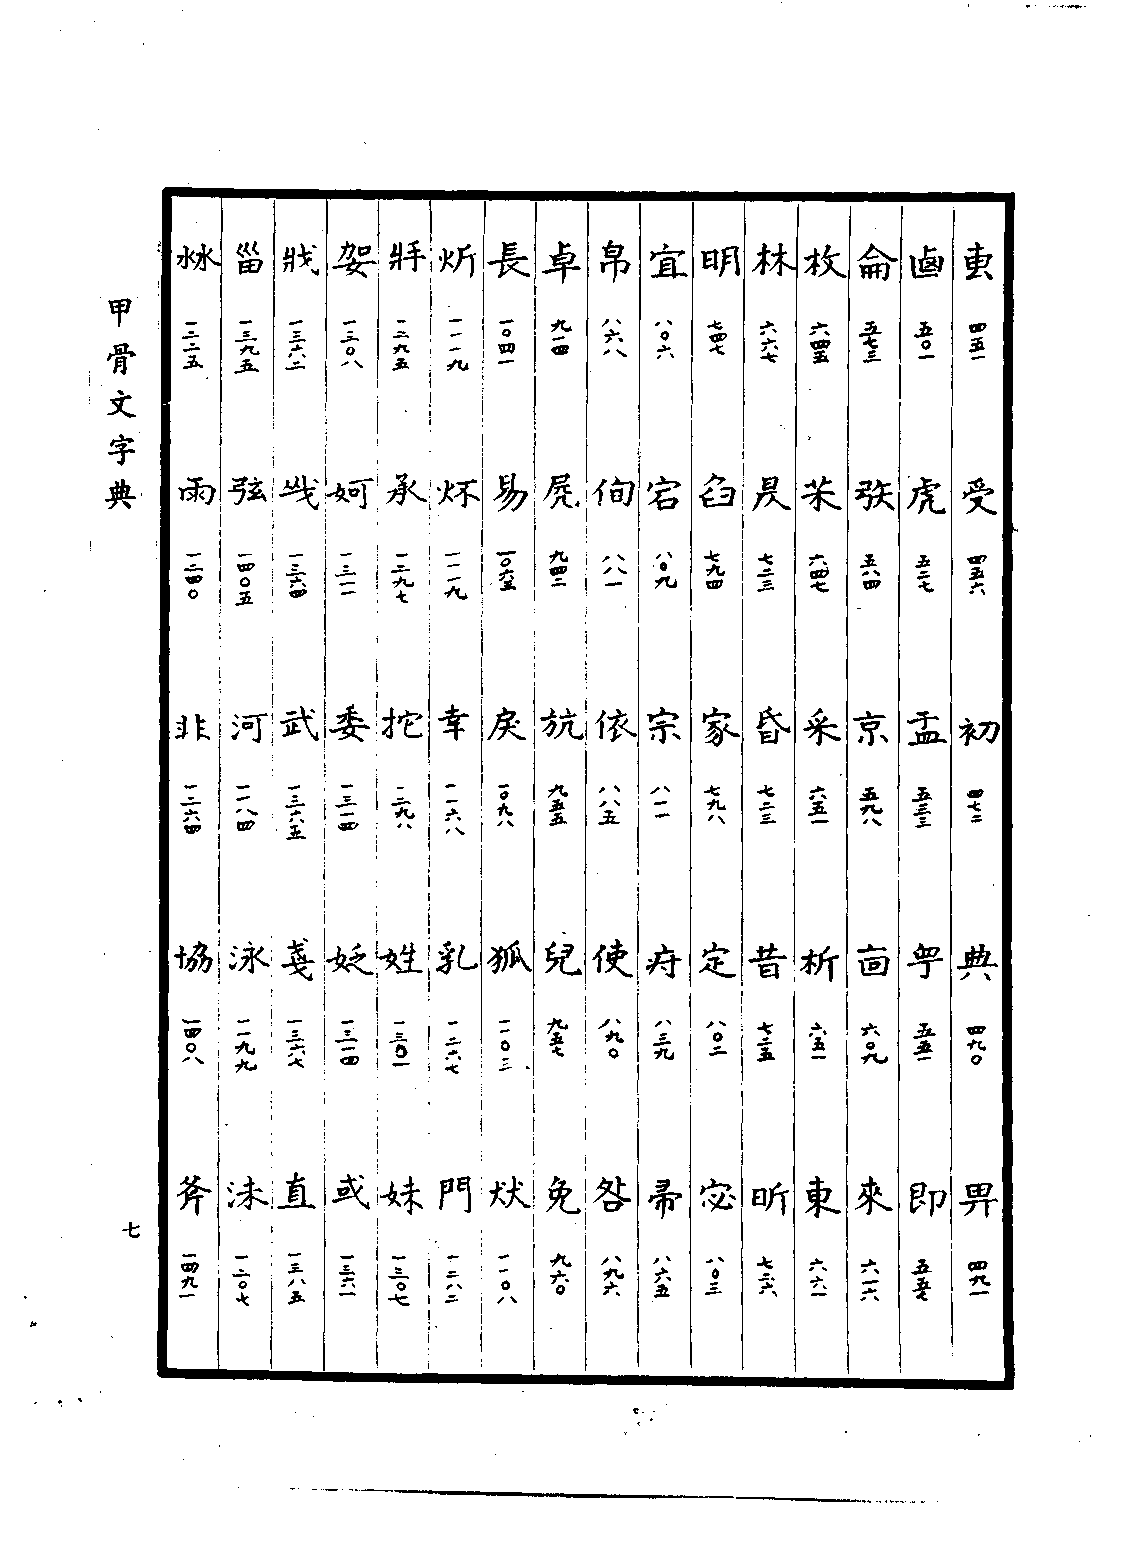 叀 四五一 受 四五六 初 四七二 典 四九〇 畀 四九一
五〇一 虎 五二七 盂 五三三 甹 五五一 即 五五七
侖 五七三 五八四 京 五九八 㐭 六〇九 來 六一六
枚 六四五 六四七 采 六五一 析 六五一 東 六六一
林 六六七 昃 七二三 昏 七二三 昔 七二五 昕 七二六
明 七四七 臽 七九四 家 七九八 定 八〇二 宓 八〇三
宜 八〇六 宕 八〇九 宗 八一一 疛 八三九 帚 八六五
帛 八六八 侚 八八一 依 八八五 使 八九〇 咎 八九六
卓 九一四 九四二 斻 九五五 兒 九五七 免 九六〇
長 一〇四一 易 一〇六五 戾 一〇九八 狐 一一〇二 㹜 一一〇八
炘 一一一九 一一一九 幸 一一六八 乳 一二六七 門 一二八二
一二九五 承 一二九七 拕 一二九八 姓 一三〇一 妹 一三〇七
妿 一三〇八 妸 一三一一 委 一三一四 姂 一三一四 或 一三六一
戕 一三六二 一三六四 武 一三六五 戔 一三六七 直 一三八五
甾 一三九五 弦 一四〇五 河 一一八四 泳 一一九九 沬 一二〇七
沝 一二二五 雨 一二四〇 非 一二六四 協 一四〇八 斧 一四九一
甲骨文字典
七